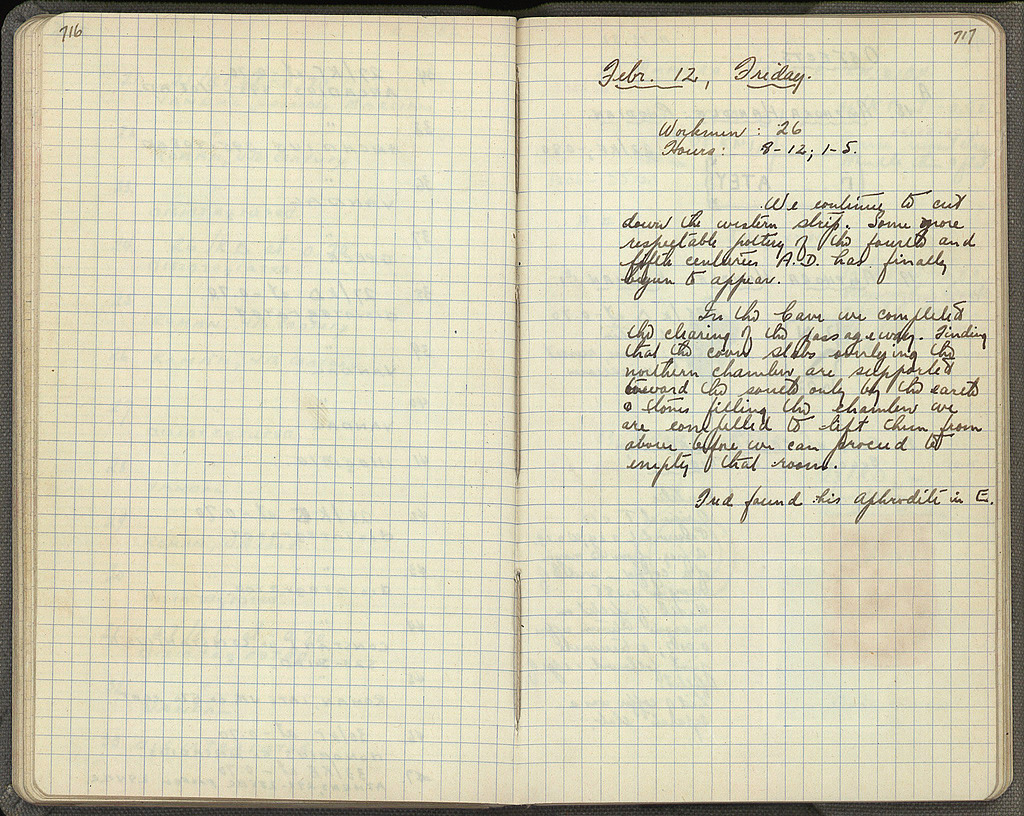 716
717
Febr. 12, Friday.
Workmen : 26
Hours : 8-12; 1-5.
We continue to cut
down the western strip. Some more
respectable pottery of the fourth and
fifth centuries A.D. has finally
begun to appear.
In the Cave we completed
the clearing of the passageway. Finding
that the cover slabs overlying the
northern chamber are supported
toward the south only by the earth
& stones filling the chamber we
are compelled to lift them from
above before we can proceed to
empty that room.
Fred found his Aphrodite in E.